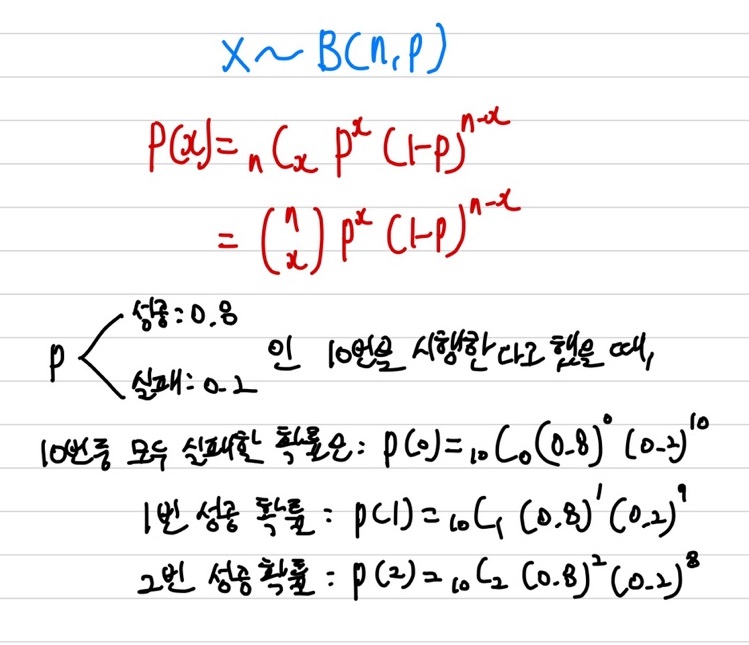 X ~ B(n, p)
P(x) = ₙCₓ pˣ (1-p)ⁿ⁻ˣ
= (n x) pˣ (1-p)ⁿ⁻ˣ
성공 : 0.8
P < 인 10번을 시행한다고 했을 때,
실패 : 0.2
10번중 모두 실패할 확률은 : P(0) = ₁₀C₀ (0.8)⁰ (0.2)¹⁰
1번 성공 확률 : P(1) = ₁₀C₁ (0.8)¹ (0.2)⁹
2번 성공 확률 : P(2) = ₁₀C₂ (0.8)² (0.2)⁸